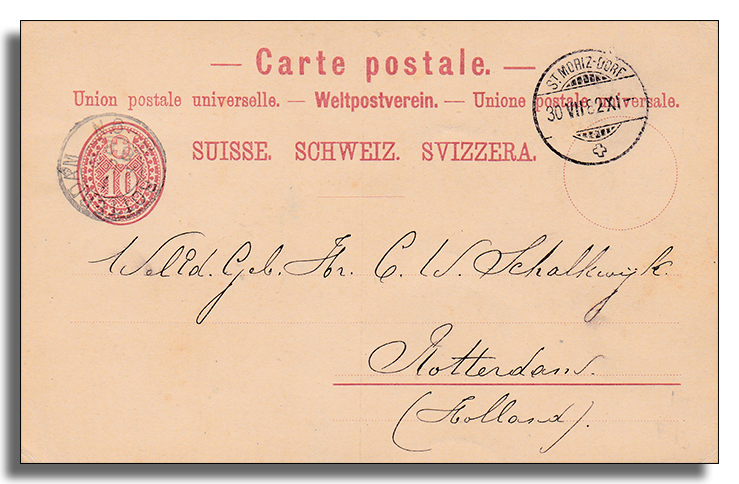 — Carte postale. —
Union postale universelle. — Weltpostverein. — Unione postale universale.
SUISSE. SCHWEIZ. SVIZZERA.
10
ST. MORIZ-DORF
30 VII 82 XI
WelEd. Geb. Hr. C. W. Schalkwijk.
Rotterdam.
(Holland).